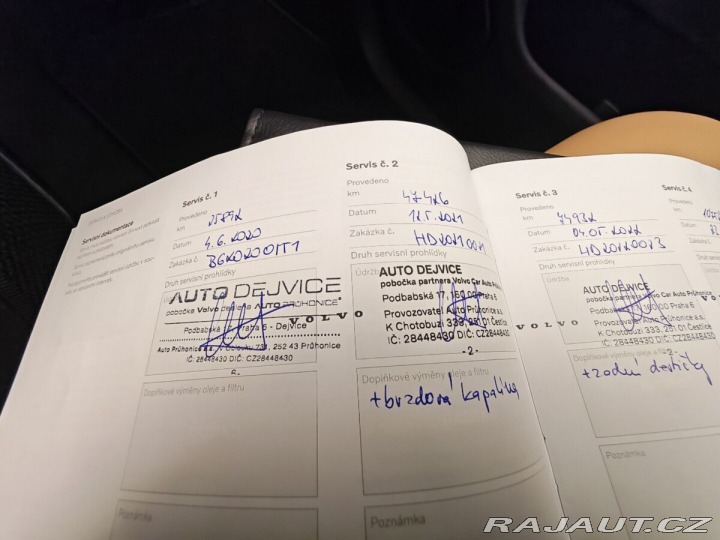 Servisní dokumentace
Servis č. 1
Provedeno
km 25892
Datum 4.6.2020
Zakázka č.
Druh servisní prohlídky
AUTO DEJVICE
pobočka Volvo
AUTO PRŮHONICE
Podbabská Praha 6 - Dejvice
VOLVO
Auto Průhonice a.s. 252 43 Průhonice
IČ: 28448430 DIČ: CZ28448430
Doplňkové výměny oleje a filtru
Poznámka
Servis č. 2
Provedeno
km 47426
Datum 12.5.2021
Zakázka č.
Druh servisní prohlídky
Údržba
AUTO DEJVICE
pobočka partnera Volvo Car Auto Průhonice
Podbabská 17, 160 00 Praha 6
Provozovatel Auto Průhonice
K Chotobuzi 333, 251 01 Čestlice
IČ: 28448430 DIČ: CZ28448430
-2-
Doplňkové výměny oleje a filtru
+brzdová kapalina
Poznámka
Servis č. 3
Provedeno
km 74932
Datum 04.05.2022
Zakázka č.
Druh servisní prohlídky
Údržba
AUTO DEJVICE
pobočka partnera Volvo Car Auto Průhonice
VOLVO
K Chotobuzi 333, 251 01 Čestlice
IČ: 28448430 DIČ: CZ28448430
-2-
Doplňkové výměny oleje a filtru
+zadní destičky
Poznámka
Servis č. 4
Provedeno
km
Datum
Zakázka č.
RAJAUT.CZ